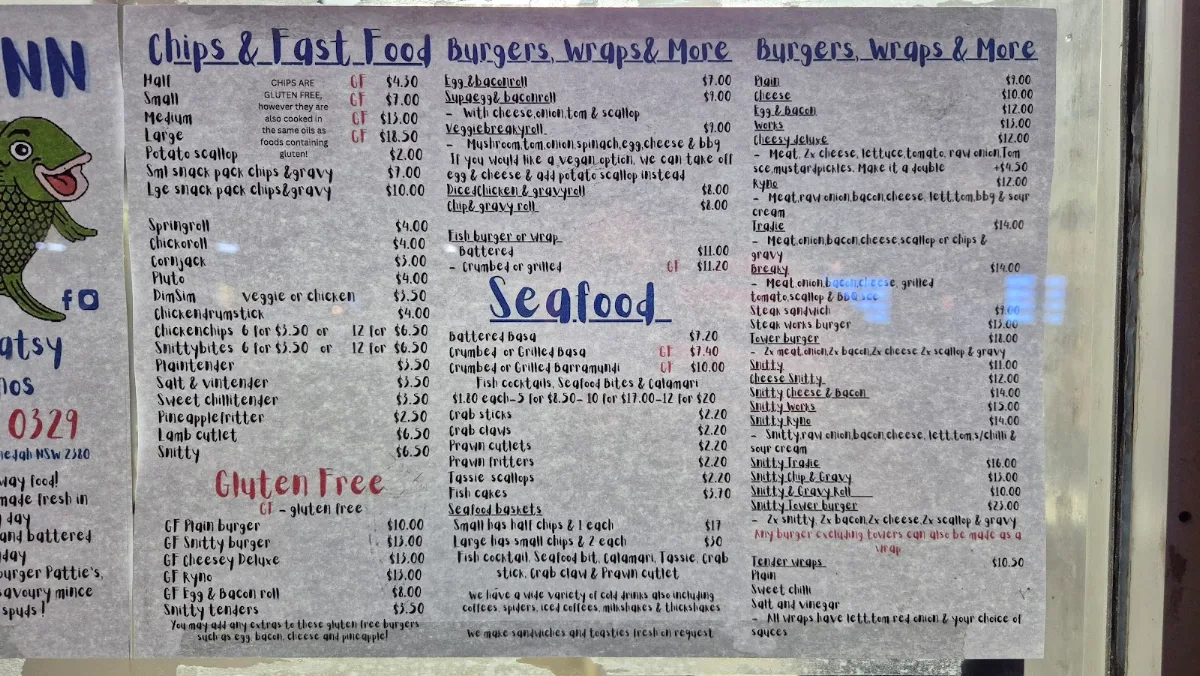 NN
atsy
nos
0329
nedah NSW 2380
way food!
made fresh in
day
and battered
day
burger Pattie's,
savoury mince
spuds!
Chips & Fast Food
Half GF $4.50
Small GF $7.00
Medium GF $13.00
Large GF $18.50
CHIPS ARE
GLUTEN FREE,
however they are
also cooked in
the same oils as
foods containing
gluten!
Potato scallop $2.00
Sml snack pack chips &gravy $7.00
Lge snack pack chips&gravy $10.00
Springroll $4.00
Chickoroll $4.00
Cornjack $3.00
Pluto $4.00
DimSim veggie or chicken $3.50
Chickendrumstick $4.00
Chickenchips 6 for $3.50 or 12 for $6.50
Snittybites 6 for $3.50 or 12 for $6.50
Plaintender $3.50
Salt & vintender $3.50
Sweet chillitender $3.50
Pineapplefritter $2.50
Lamb cutlet $6.50
Snitty $6.50
Gluten Free
GF - gluten free
GF Plain burger $10.00
GF Snitty burger $13.00
GF Cheesey Deluxe $13.00
GF Ryno $13.00
GF Egg & Bacon roll $8.00
Snitty tenders $3.50
You may add any extras to these gluten free burgers
such as egg, bacon, cheese and pineapple!
Burgers, Wraps& More
Egg &baconroll $7.00
Supaegg& baconroll $9.00
- With cheese,onion,tom & scallop
Veggiebreakyroll $9.00
- Mushroom,tom,onion,spinach,egg,cheese & bbq
If you would like a vegan option, we can take off
egg & cheese & add potato scallop instead
DicedChicken & gravyroll $8.00
Chip& gravy roll $8.00
Fish burger or wrap
Battered $11.00
- Crumbed or grilled GF $11.20
Seafood
Battered Basa $7.20
Crumbed or Grilled Basa GF $7.40
Crumbed or Grilled Barramundi GF $10.00
Fish cocktails, Seafood Bites & Calamari
$1.80 each-5 for $8.50- 10 for $17.00-12 for $20
Crab sticks $2.20
Crab claws $2.20
Prawn cutlets $2.20
Prawn fritters $2.20
Tassie scallops $2.20
Fish cakes $3.70
Seafood baskets
Small has half chips & 1 each $17
Large has small chips & 2 each $30
Fish cocktail, Seafood bit, Calamari, Tassie, Crab
stick, Crab claw & Prawn cutlet
We have a wide variety of cold drinks also including
coffees, spiders, iced coffees, milkshakes & thickshakes
We make sandwiches and toasties fresh on request
Burgers, Wraps & More
Plain $9.00
Cheese $10.00
Egg & Bacon $12.00
Works $13.00
Cheesy deluxe $12.00
- Meat, 2x cheese, lettuce,tomato, raw onion,Tom
sce,mustardpickles. Make it a double +$4.50
Ryno $12.00
- Meat,raw onion,bacon,cheese, lett,tom,bbq & sour
cream
Tradie $14.00
- Meat,onion,bacon,cheese,scallop or chips &
gravy
Breaky $14.00
- Meat,onion,bacon,cheese, grilled
tomato,scallop & BBQ sce
Steak sandwich $9.00
Steak works burger $13.00
Tower burger $18.00
- 2x meat,onion,2x bacon,2x cheese 2x scallop & gravy
Snitty $11.00
Cheese Snitty $12.00
Snitty Cheese & Bacon $14.00
Snitty Works $15.00
Snitty Ryno $14.00
- Snitty,raw onion,bacon,cheese, lett,tom,s/chilli &
sour cream
Snitty Tradie $16.00
Snitty Chip & Gravy $13.00
Snitty & Gravy Roll $10.00
Snitty Tower burger $23.00
- 2x snitty, 2x bacon,2x cheese,2x scallop & gravy
Any burger excluding towers can also be made as a
wrap
Tender wraps $10.50
Plain
Sweet chilli
Salt and vinegar
- All wraps have lett,tom red onion & your choice of
sauces